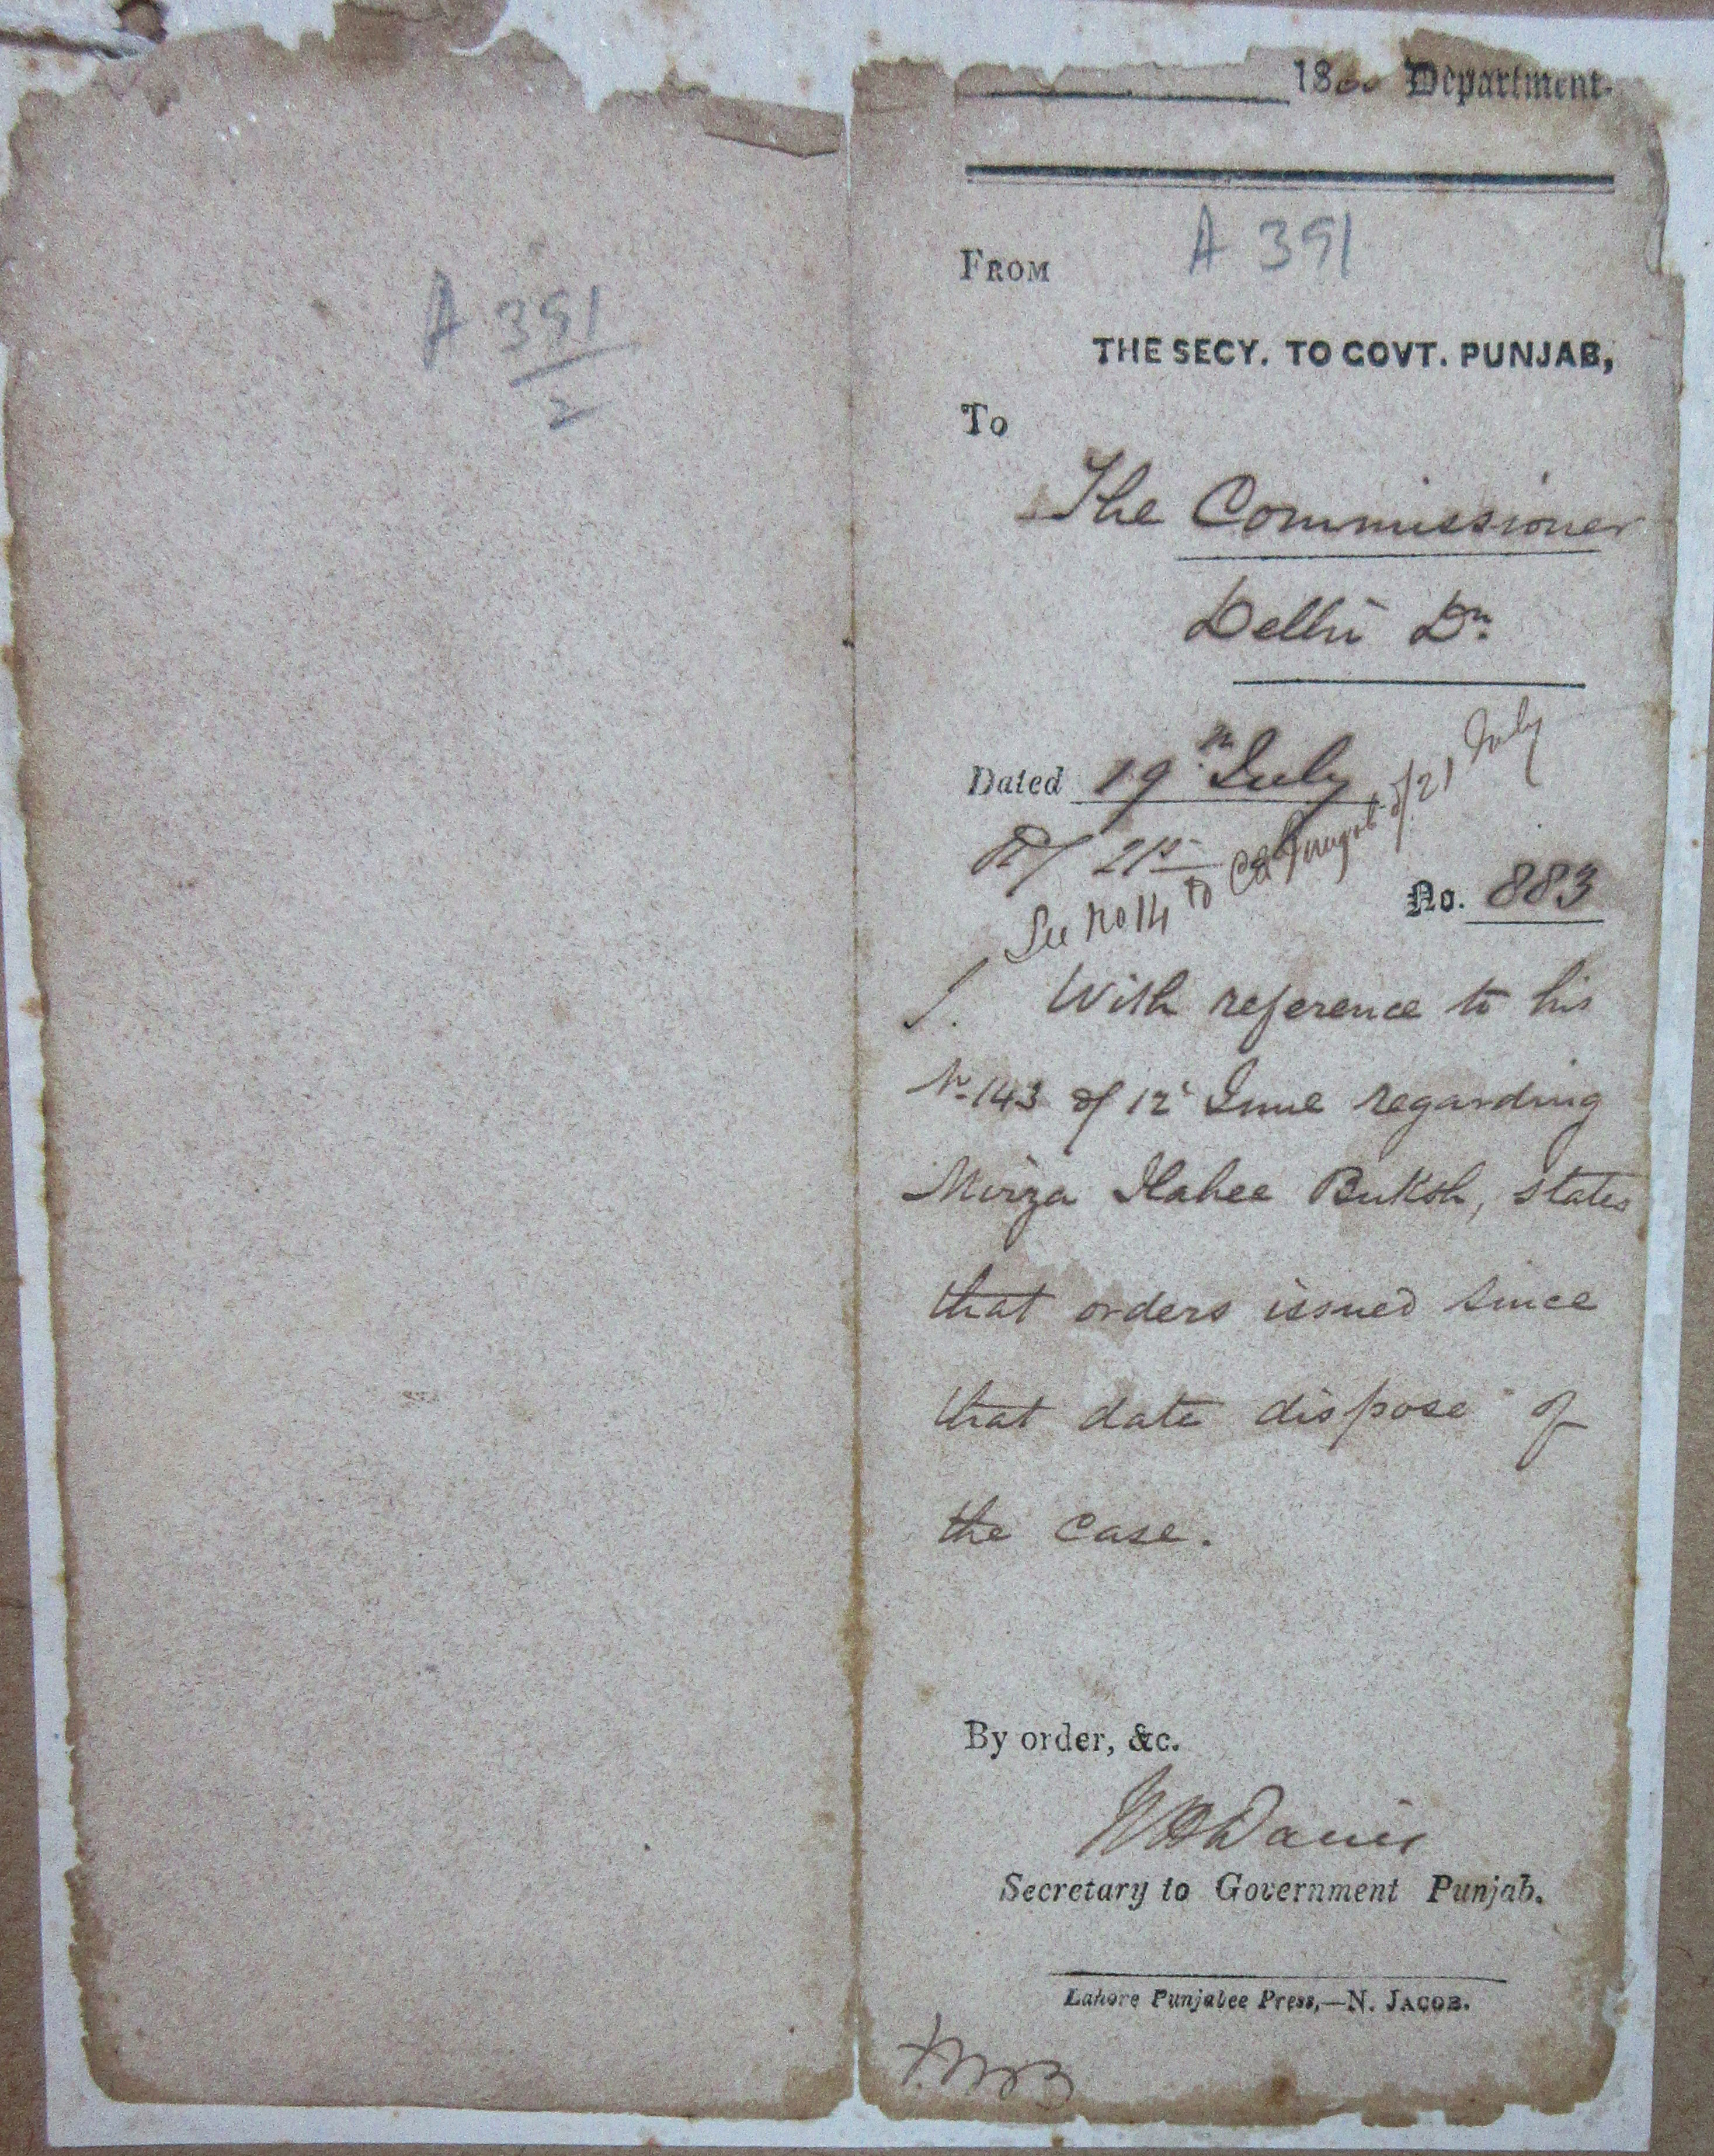 A 391
2
1860 Department.
A 391
FROM
THE SECY. TO GOVT. PUNJAB,
To
The Commissioner
Delhi Dn.
Dated 19th July
R/ 21st
See No 14 to of/21 July
No. 883
1. With reference to his
No 143 of 12 June regarding
Mirza Ilahee Buksh, states
that orders issued since
that date dispose of
the case.
By order, &c.
Davies
Secretary to Government Punjab.
Lahore Punjabee Press,—N. JACOB.